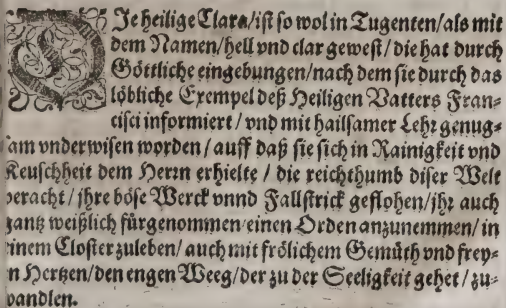 DJe heilige Clara/ist so wol in Tugenten/als mit
dem Namen/hell vnd clar gewest/die hat durch
Göttliche eingebungen/nach dem sie durch das
löbliche Exempel deß Heiligen Vatters Fran=
cisci informiert/vnd mit hailsamer Lehr genug=
sam vnderwisen worden/auff daß sie sich in Rainigkeit vnd
Keuschheit dem Herrn erhielte/die reichthumb diser Welt
veracht/jhre böse Werck vnnd Fallstrick geflohen/jhr auch
gantz weißlich fürgenommen einen Orden anzunemmen/in
einem Closter zuleben/auch mit frölichem Gemüth vnd frey=
en Hertzen/den engen Weeg/der zu der Seeligkeit gehet/zu=
wandlen.